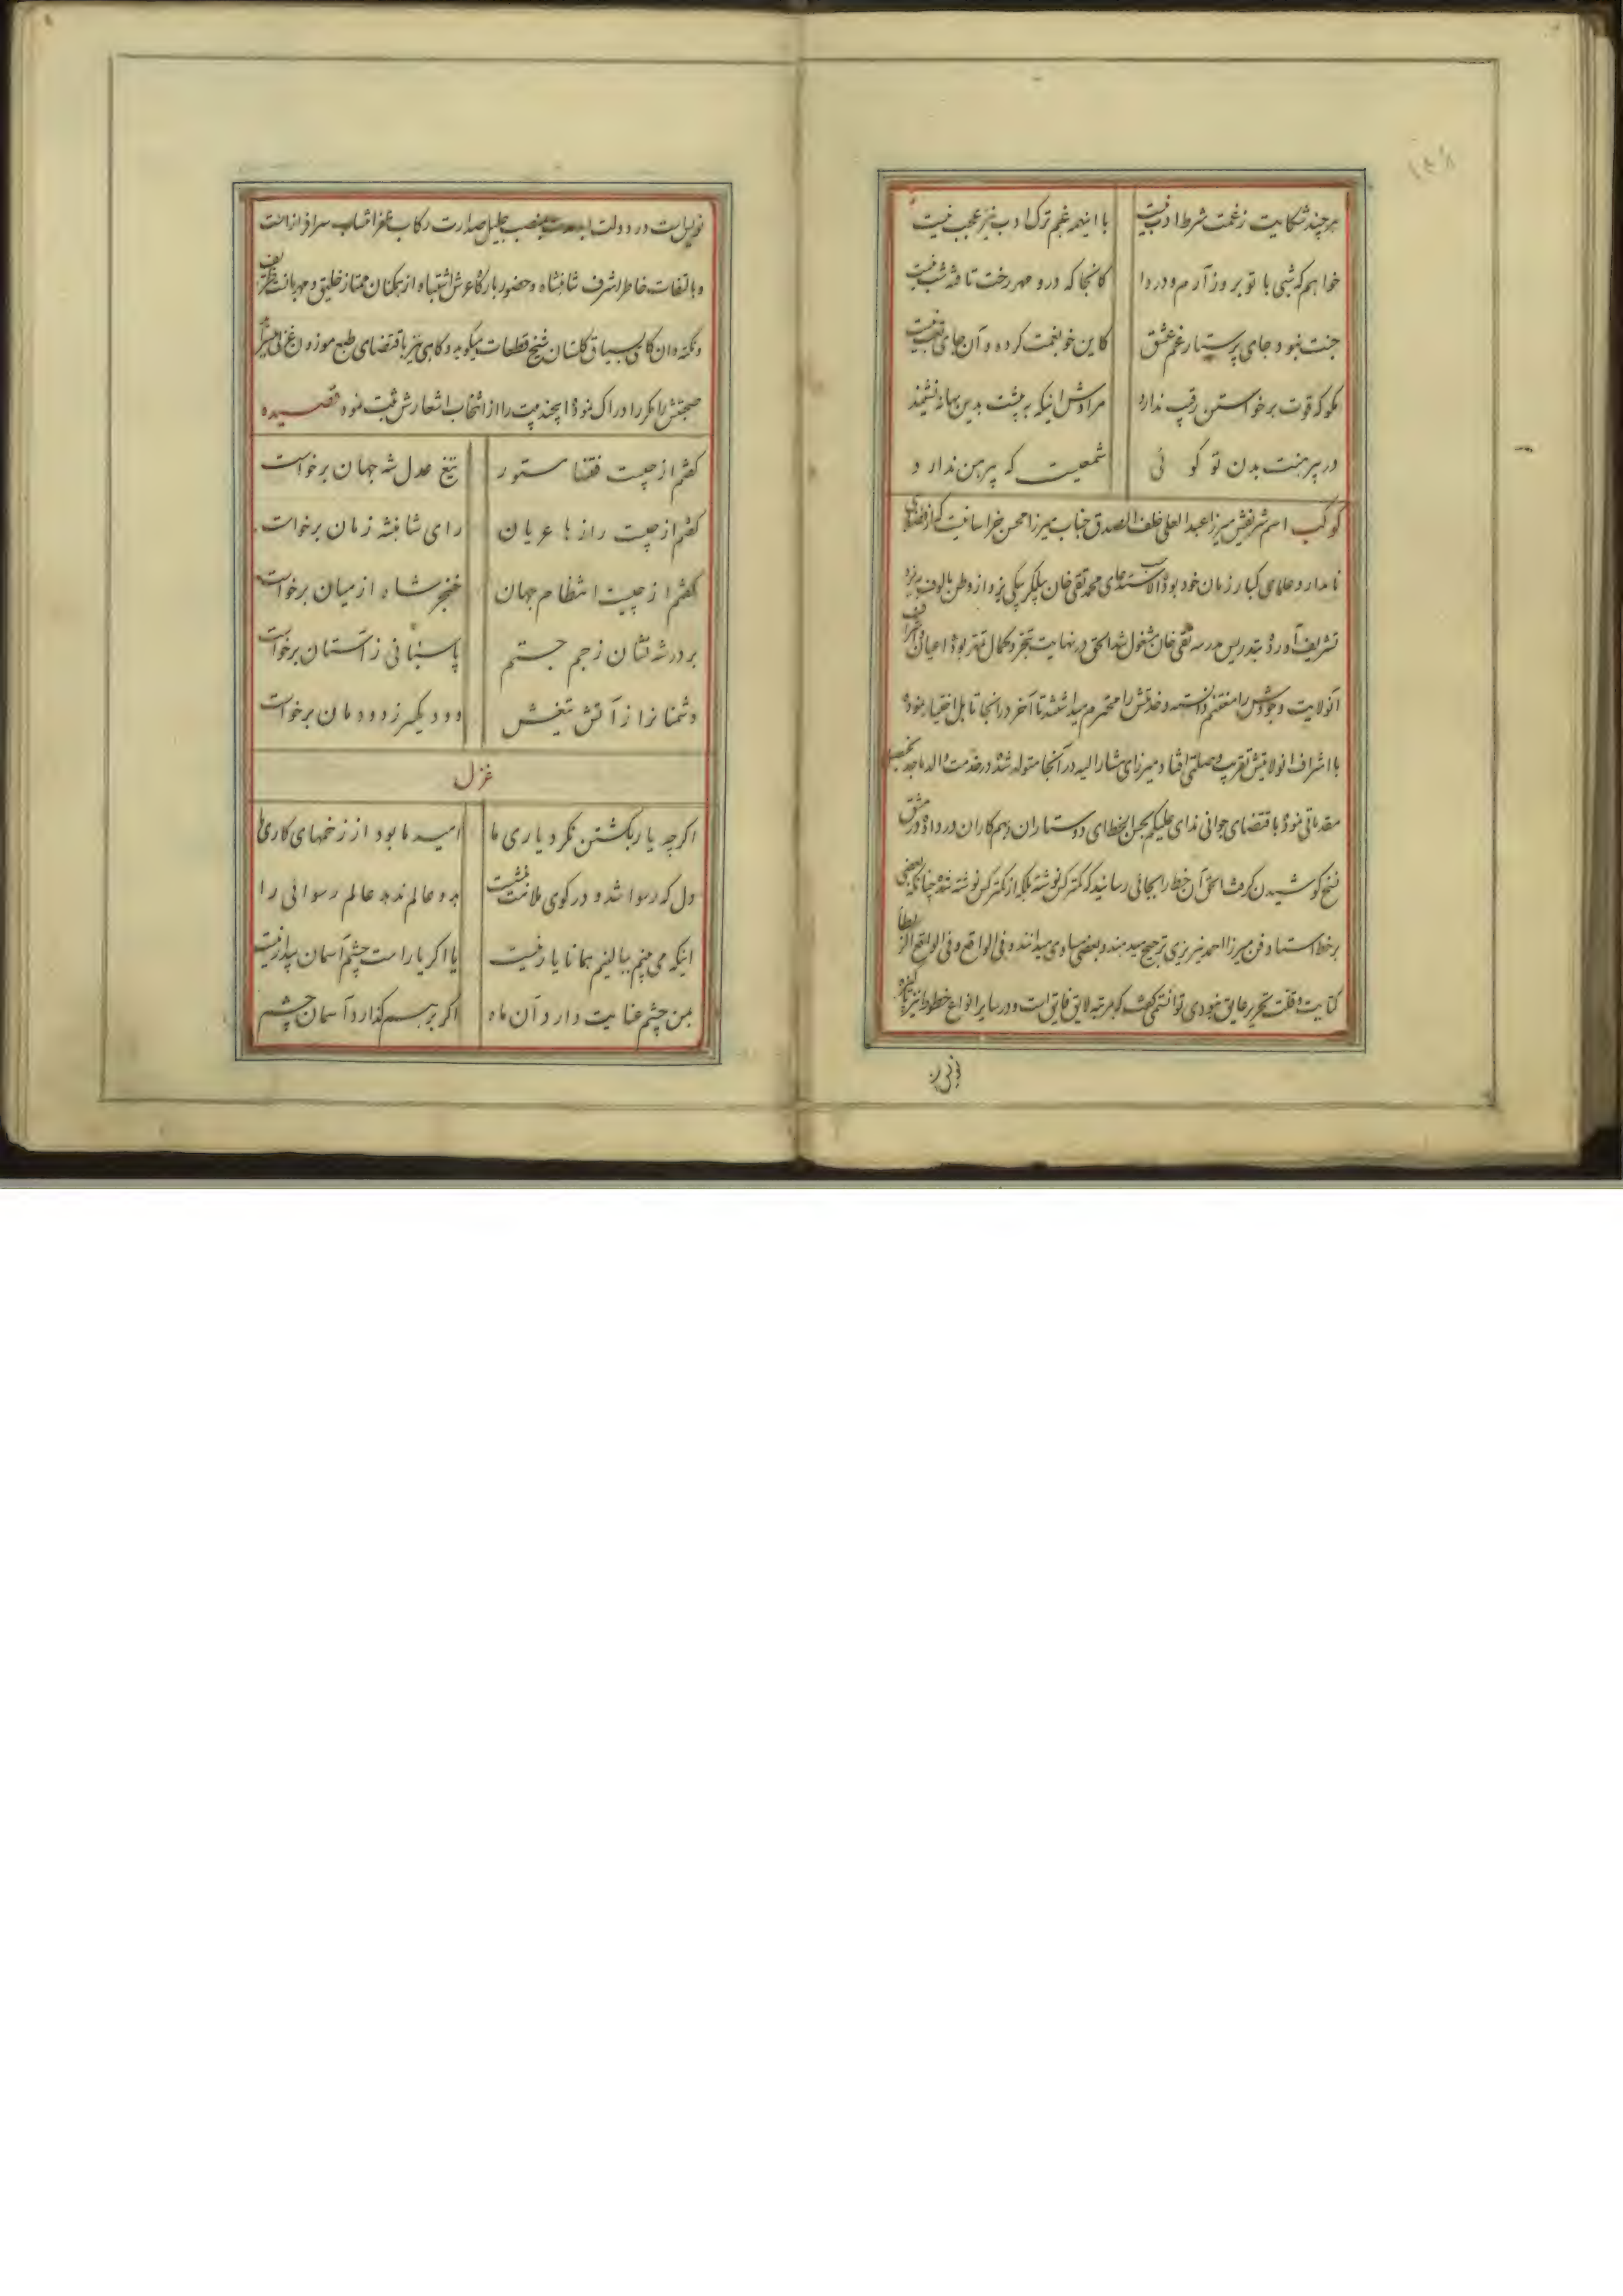 هرچند شکایت ز غمت شرط ادب نیست با اینهمه غم ترک ادب نیز عجب نیست
خواهم که شبی با تو بروز آرم و دردا کانجا که درو مهر رخت تافته شب نیست
جنت نبود جای پرستار غم عشق کاین خو بغمت کرده و آن جای تعب نیست
مکو که قوت برخواستن رقیب ندارد مرادش اینکه به پشت بدین بهانه نشیند
در پیرهنت بدن تو کوئی شمعیست که پیرهن ندارد
کوکب اسم شریفش میرزا عبدالعلی خلف الصدق جناب میرزا محسن خراسانیست که از فضلای
نامدار و علمای کبار زمان خود بوده الاستدعای محمد تقی خان بیکلربیکی یزد از وطن مالوف به یزد
تشریف آورده بتدریس مدرسه تقی خان مشغول شد الحق در نهایت تبحر و کمال بوده اعیان و اشراف
آنولایت وجودش را مغتنم دانسته و خدمتش را محترم میداشتند تا آخر در انجا تاهل اختیار نموده
با اشراف انولایتش تقرب وصلتی افتاد و میرزای مشارالیه در آنجا متولد شده در خدمت والد ماجد تحصیل
مقدماتی نموده باقتضای جوانی ندای علیکم بحسن الخط دوستاران و همکاران در داده در مشق
نسخ کوشیدن گرفت الحق آن خط را بجائی رسانید که کمتر کس نوشته بلکه از کمتر کس نوشته شده چنانکه بعضی
بر خط استاد فن میرزا احمد نیریزی ترجیح میدهند و بعضی مساوی میدانند و فی الواقع
کتابت و قلت تحریر عایق نبودی توانستمی گفت که بمرتبه لایق فایق است و در سایر انواع خطوط نیز
نویس است در دولت منصب جلیل صدارت رکاب ظفر انتساب سرافراز است
و بالتفات خاطر اشرف شاهنشاه و حضور بارگاه عرش اشتباه از همکنان ممتاز خلیق و مهربانست
و نکته دان گاهی بسیاق گلستان شیخ قطعات میگوید و گاهی نیز باقتضای طبع موزون غزلی
صحبتش را مکرر ادراک نموده اینچند بیت را از انتخاب اشعارش ثبت نمود قصیده
گفتم از چیست فتنها مستور تیغ عدل شه جهان برخواست
گفتم از چیست رازها عریان رای شاهنشه زمان برخواست
گفتم از چیست انتظام جهان خنجر شاه از میان برخواست
بر درشه نشان ز جم جستم پاسبانی ز آستان برخواست
دشمنانرا ز آتش تیغش دود یکسر ز دودمان برخواست
غزل
اگرچه یار بکشتن نکرد یاری ما امید ما بود از زخمهای کاری ما
دل که رسوا شد و در کوی ملامت بنشست به دو عالم ندهد عالم رسوائی را
اینکه می بینم ببالینم همانا یار نیست یا اگر یار است چشم آسمان بیدار نیست
بمن چشم عنایت دارد آن ماه اگر برهم گذارد آسمان چشم